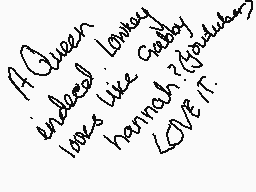 A Queen
indeed. Lowkey
looks like Gabby
hannah? (youtuber)
LOVE IT.